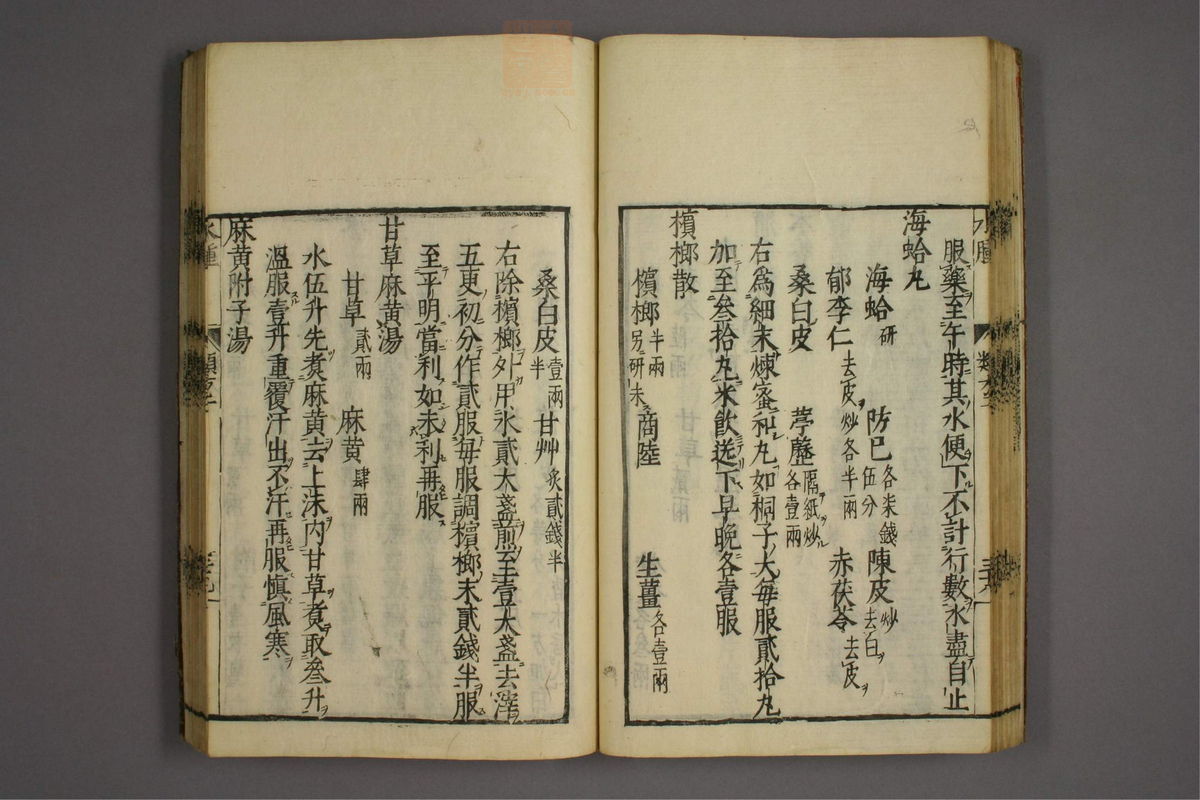 服藥至午時其水便下不計行數水盡自止
海蛤丸
海蛤研 防已各柒錢伍分 陳皮炒去白
郁李仁去皮炒各半兩 赤茯苓去皮
桑白皮 葶藶隔紙炒各壹兩
右爲細末煉蜜和丸如桐子大每服貳拾丸
加至叁拾丸米飲送下早晚各壹服
檳榔散
檳榔半兩另研末 商陸 生薑各壹兩
桑白皮壹兩半 甘艸炙貳錢半
右除檳榔外用水貳大盞煎至壹大盞去滓
五更初分作貳服每服調檳榔末貳錢半服
至平明當利如未利再服
甘草麻黄湯
甘草貳兩 麻黄肆兩
水伍升先煮麻黄去上沫内甘草煮取叁升
溫服壹升重覆汗出不汗再服慎風寒
麻黄附子湯
水腫